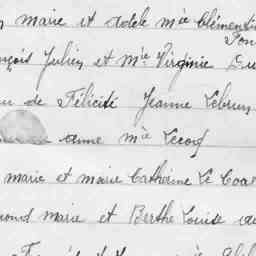 marie et Adele mie Clémentin
Pon
nçois Julien et Mie Virginie Du
de Félicité Jeanne Lebrun
anne mie Lecoq
marie et marie Catherine Le Coa
mond Marie et Berthe Louise